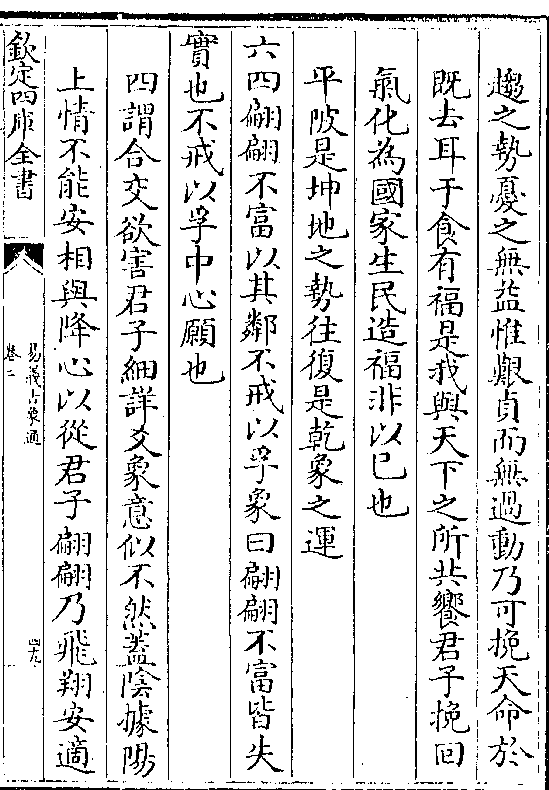 趨之勢憂之無益惟艱貞而無過動乃可挽天命於
既去耳于食有福是我與天下之所共饗君子挽回
氣化為國家生民造福非以巳也
平陂是坤地之勢往復是乾象之運
六四翩翩不富以其鄰不戒以孚象曰翩翩不富皆失
實也不戒以孚中心願也
四謂合交欲害君子細詳爻象意似不然蓋陰據陽
上情不能安相與降心以從君子翩翩乃飛翔安適
欽定四庫全書
易義古象通
卷二
四九